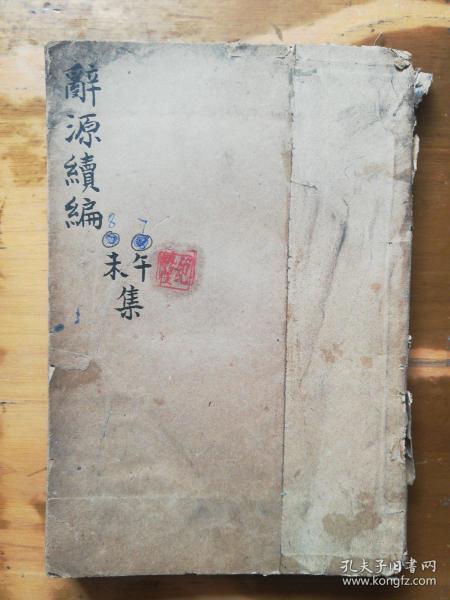 辭源續編
7午
8未
集
孔夫子旧书网
www.kongfz.com